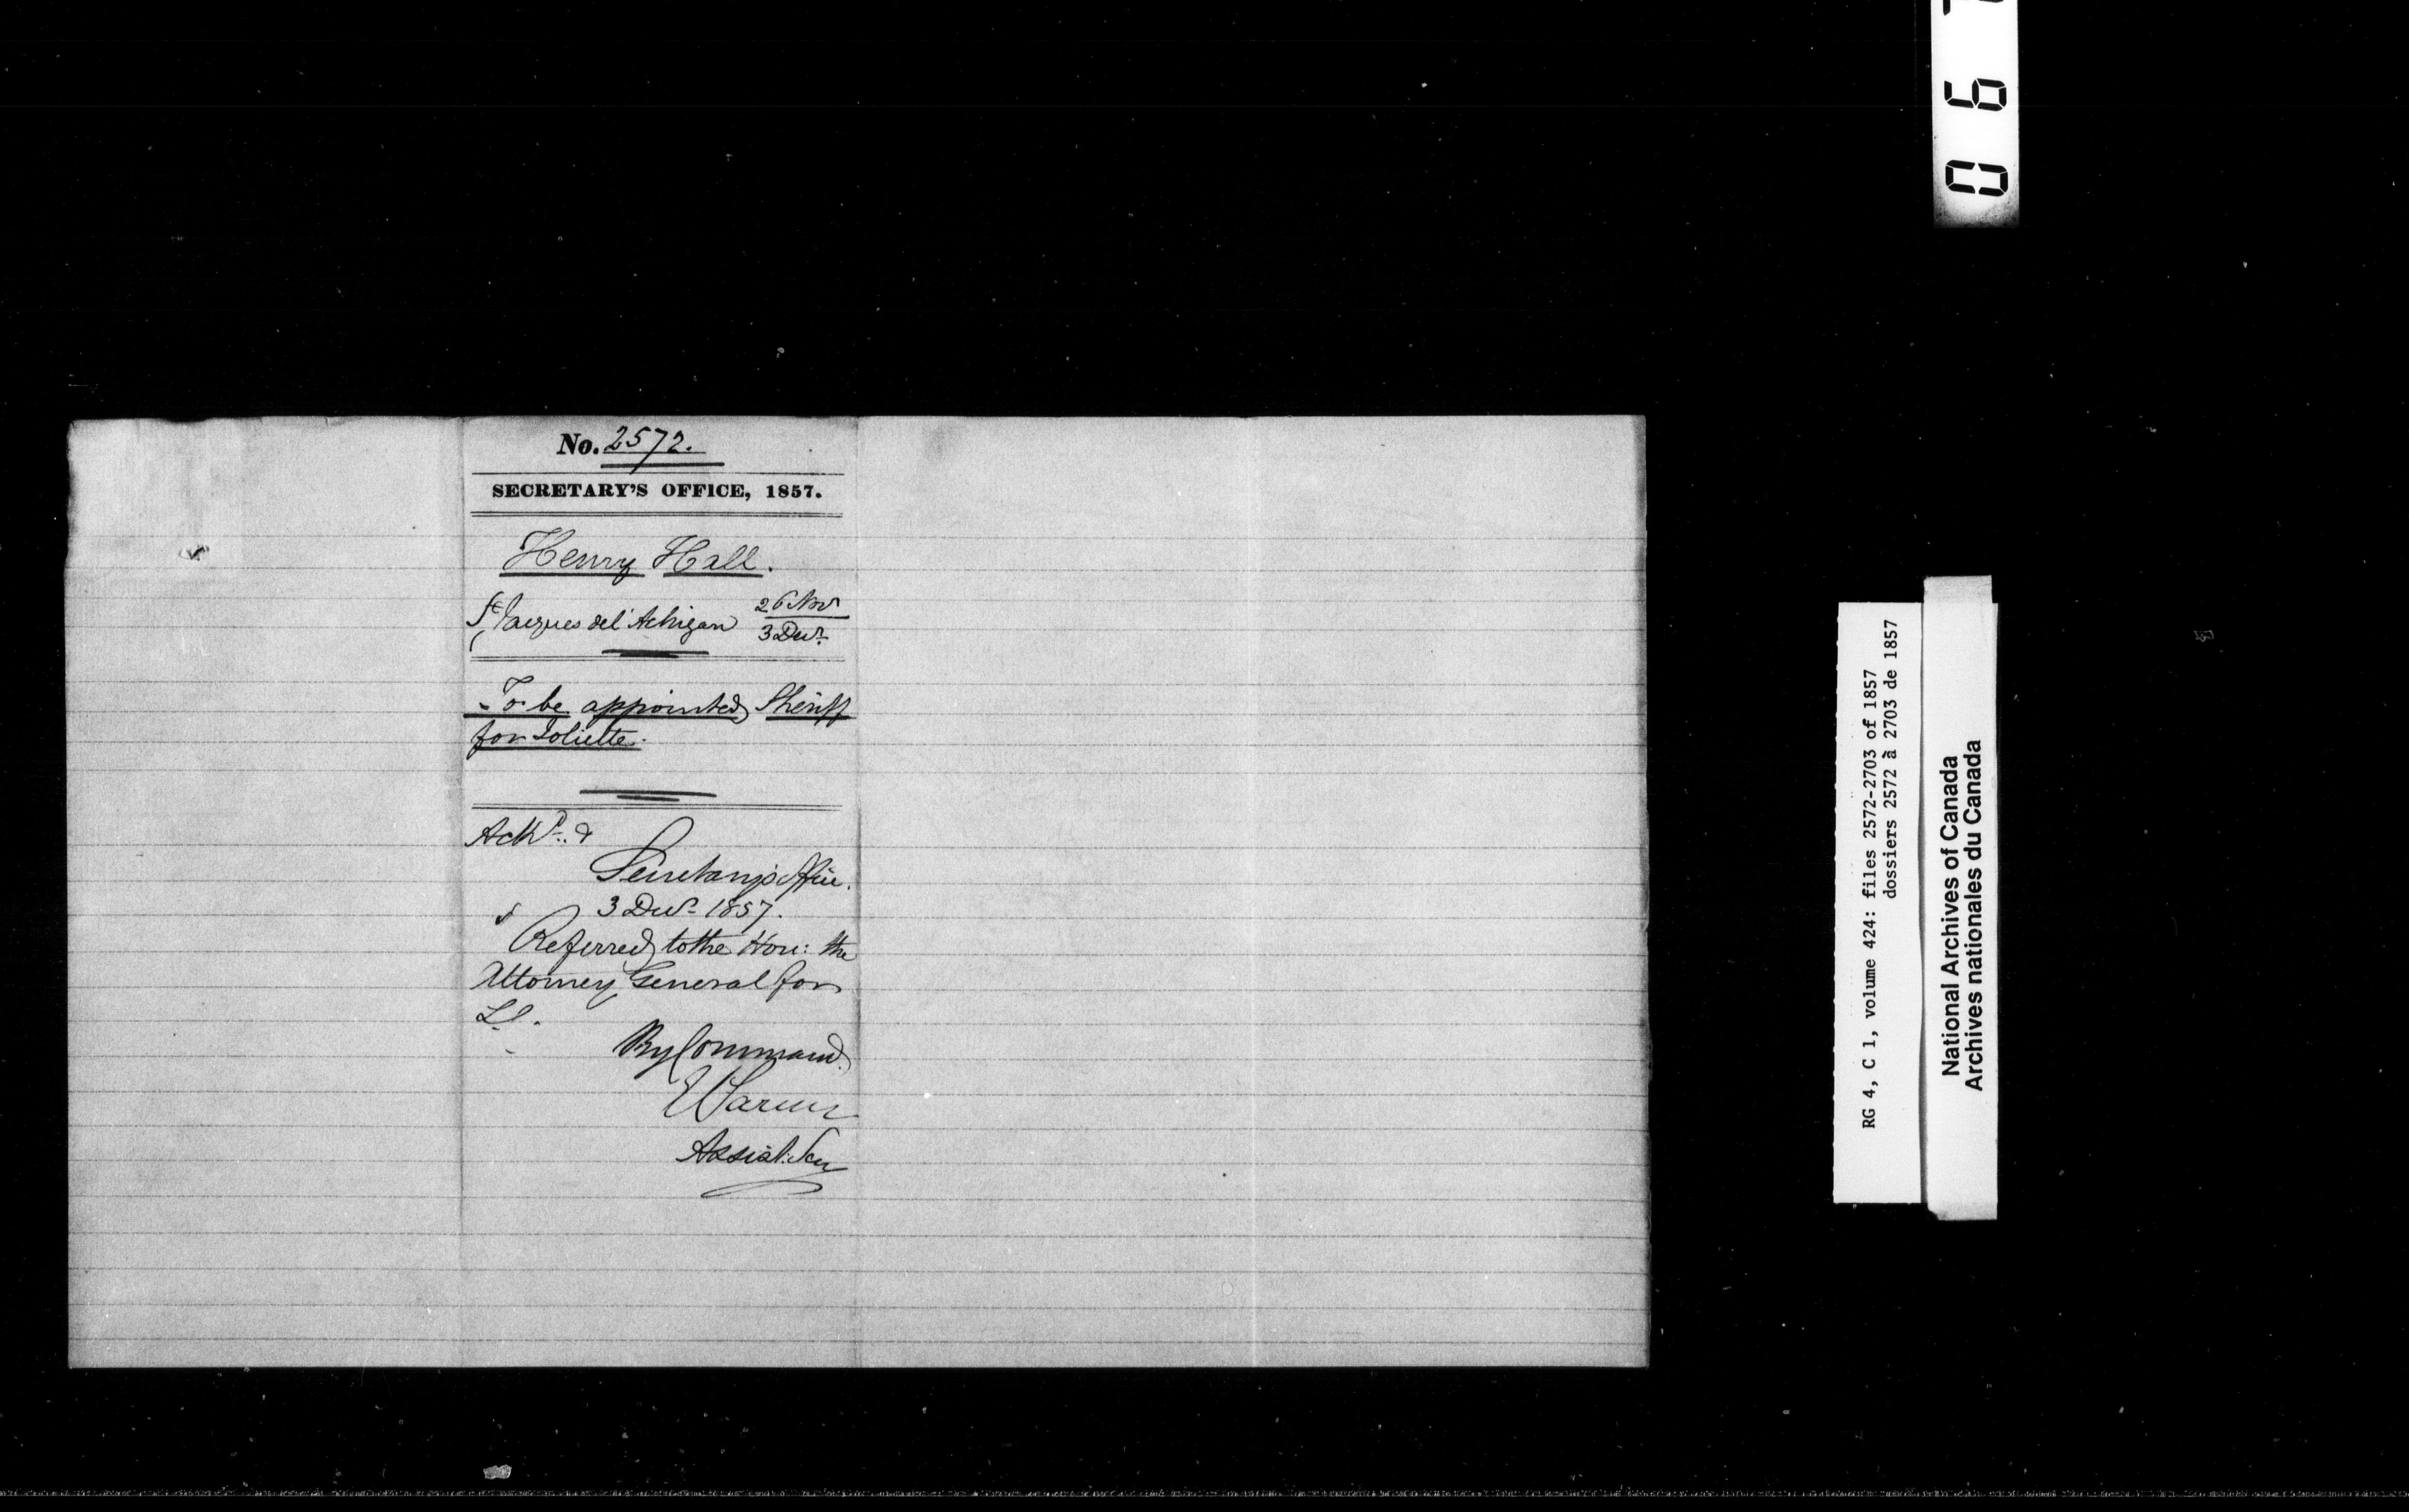 No. 2572.
SECRETARY'S OFFICE, 1857.
Henry Hall.
St Jacques de l'Achigan 26 Novr
3 Decr.
To be appointed Sheriff
for Joliette.
Ackd. &
Secretary's Office.
3 Decr 1857.
Referred to the Hon: the
Attorney General for
L.C.
By Command.
E Parent
Assist. Secy
0 6
RG 4, C 1, volume 424: files 2572-2703 of 1857
dossiers 2572 à 2703 de 1857
National Archives of Canada
Archives nationales du Canada